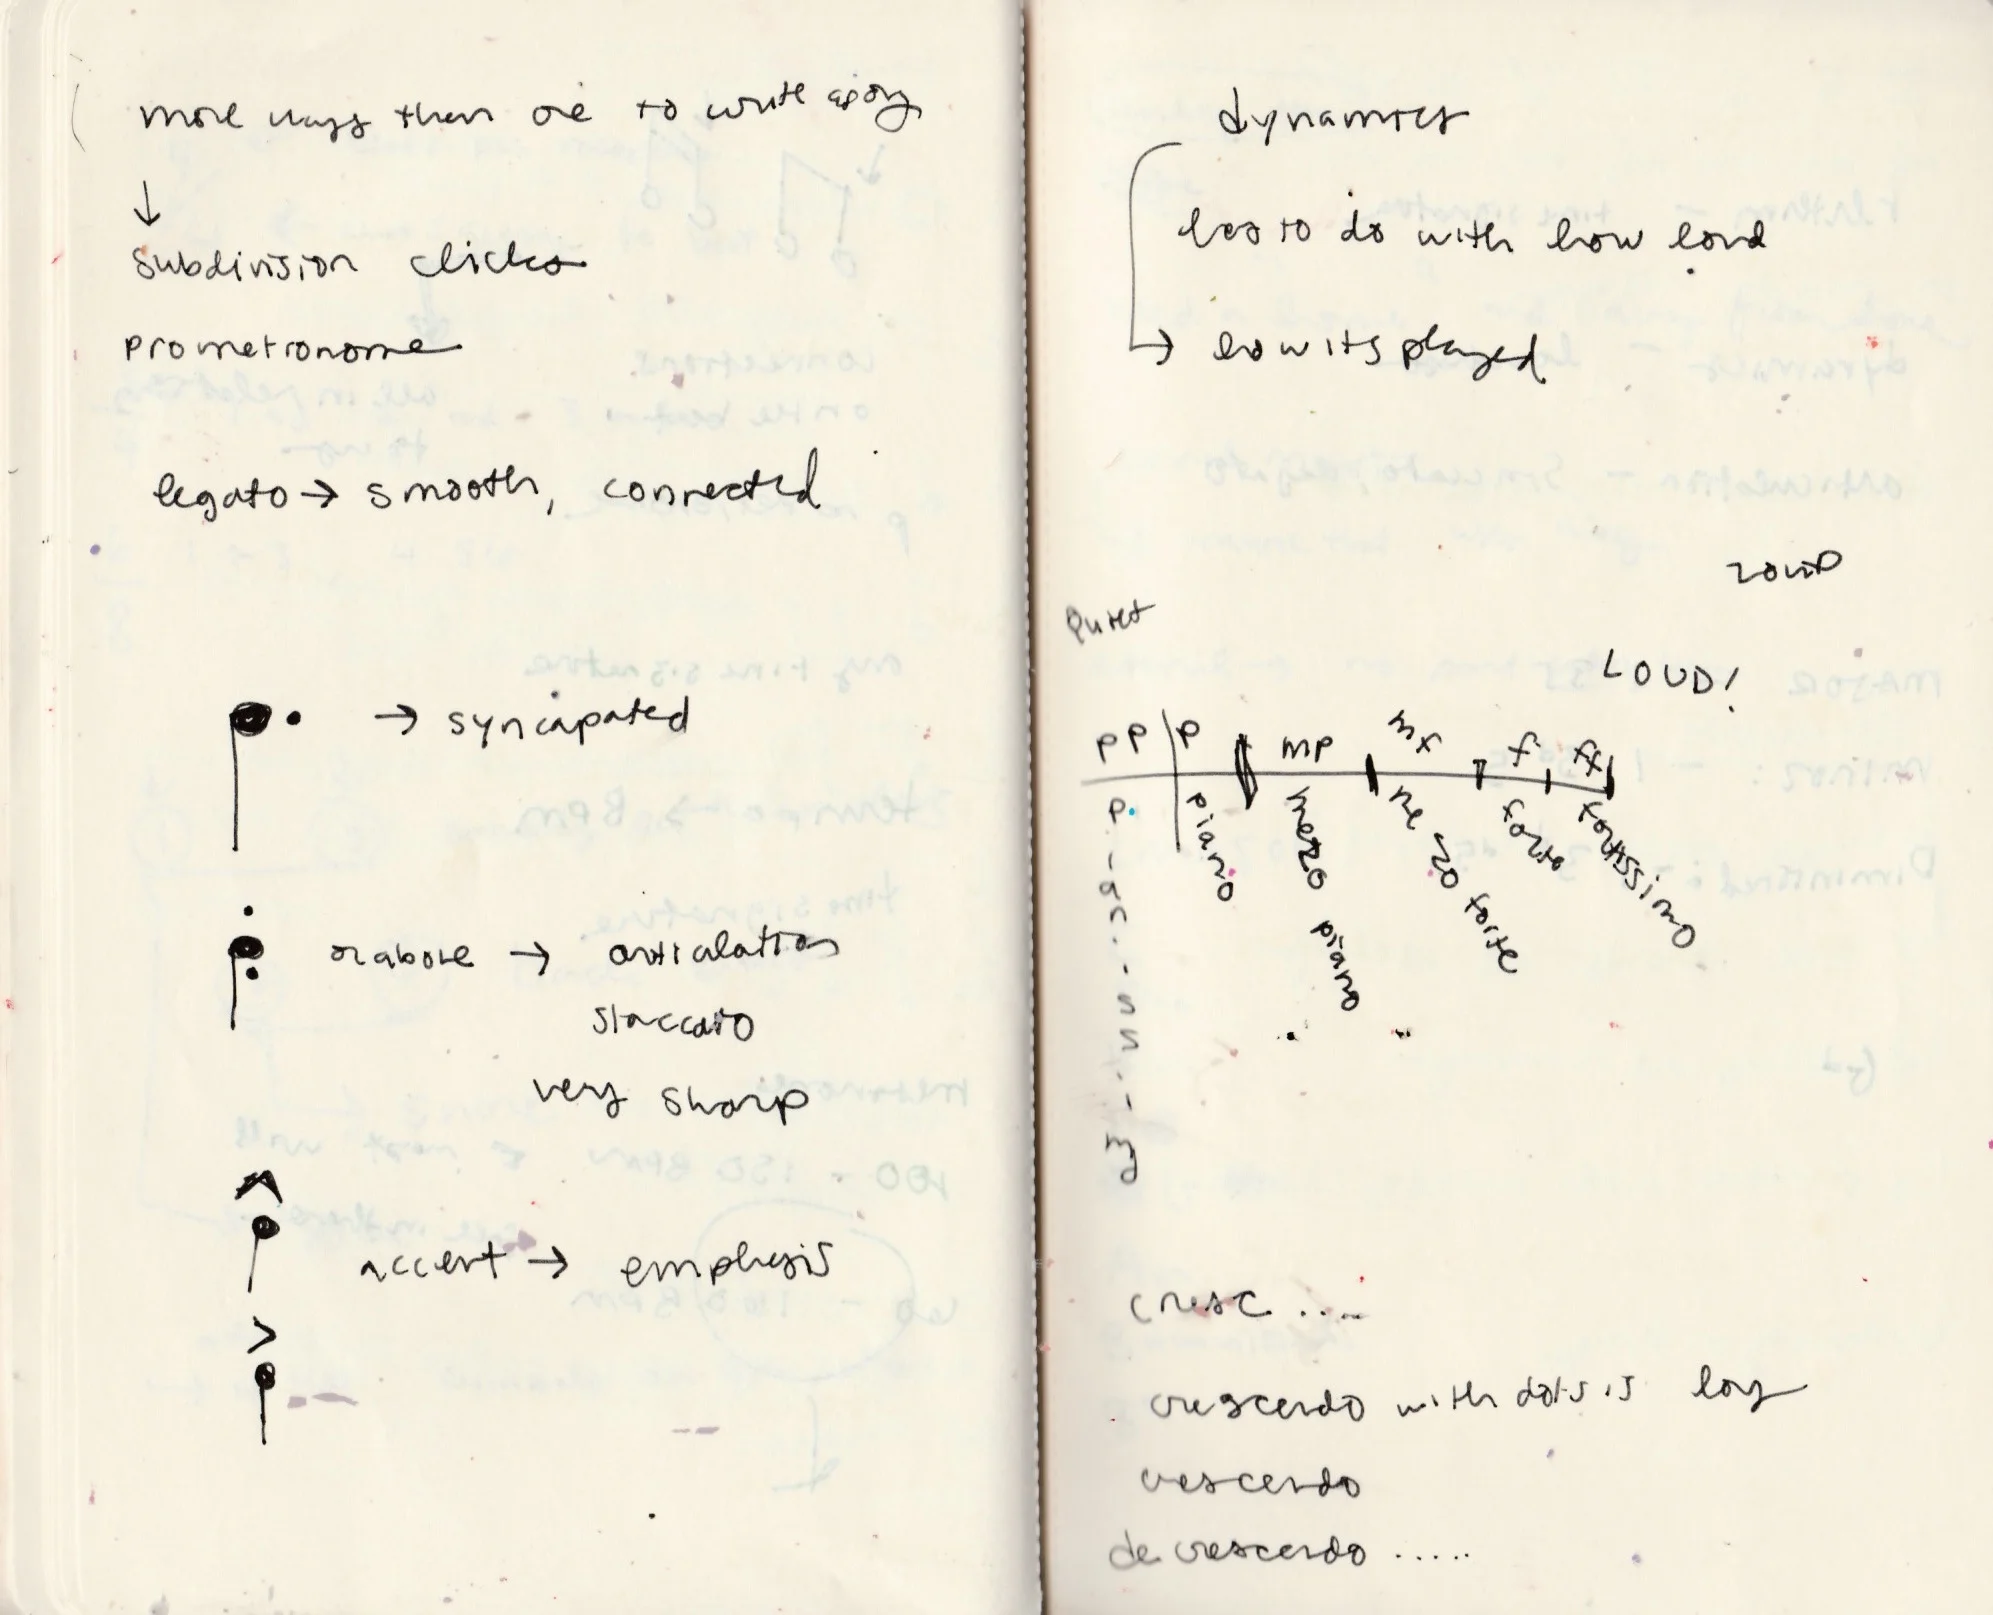 more ways than one to write a song
↓
subdivision clicks
prometronome
legato → smooth, connected
→ syncapated
or above → articulation
staccato
very sharp
accent → emphasis
dynamics
has to do with how loud
→ how its played
LOUD
Quiet
LOUD!
pp p mp mf f ff
piano
mezzo piano
mezzo forte
forte
fortissimo
cresc ....
crescendo with dots is long
crescendo
decrescendo .....